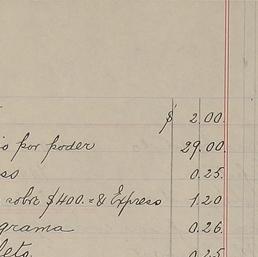 $ 2.00.
o por poder 29.00.
so 0.25.
sobre $400.= & Expreso 1.20
grama 0.26.
lets 0.25